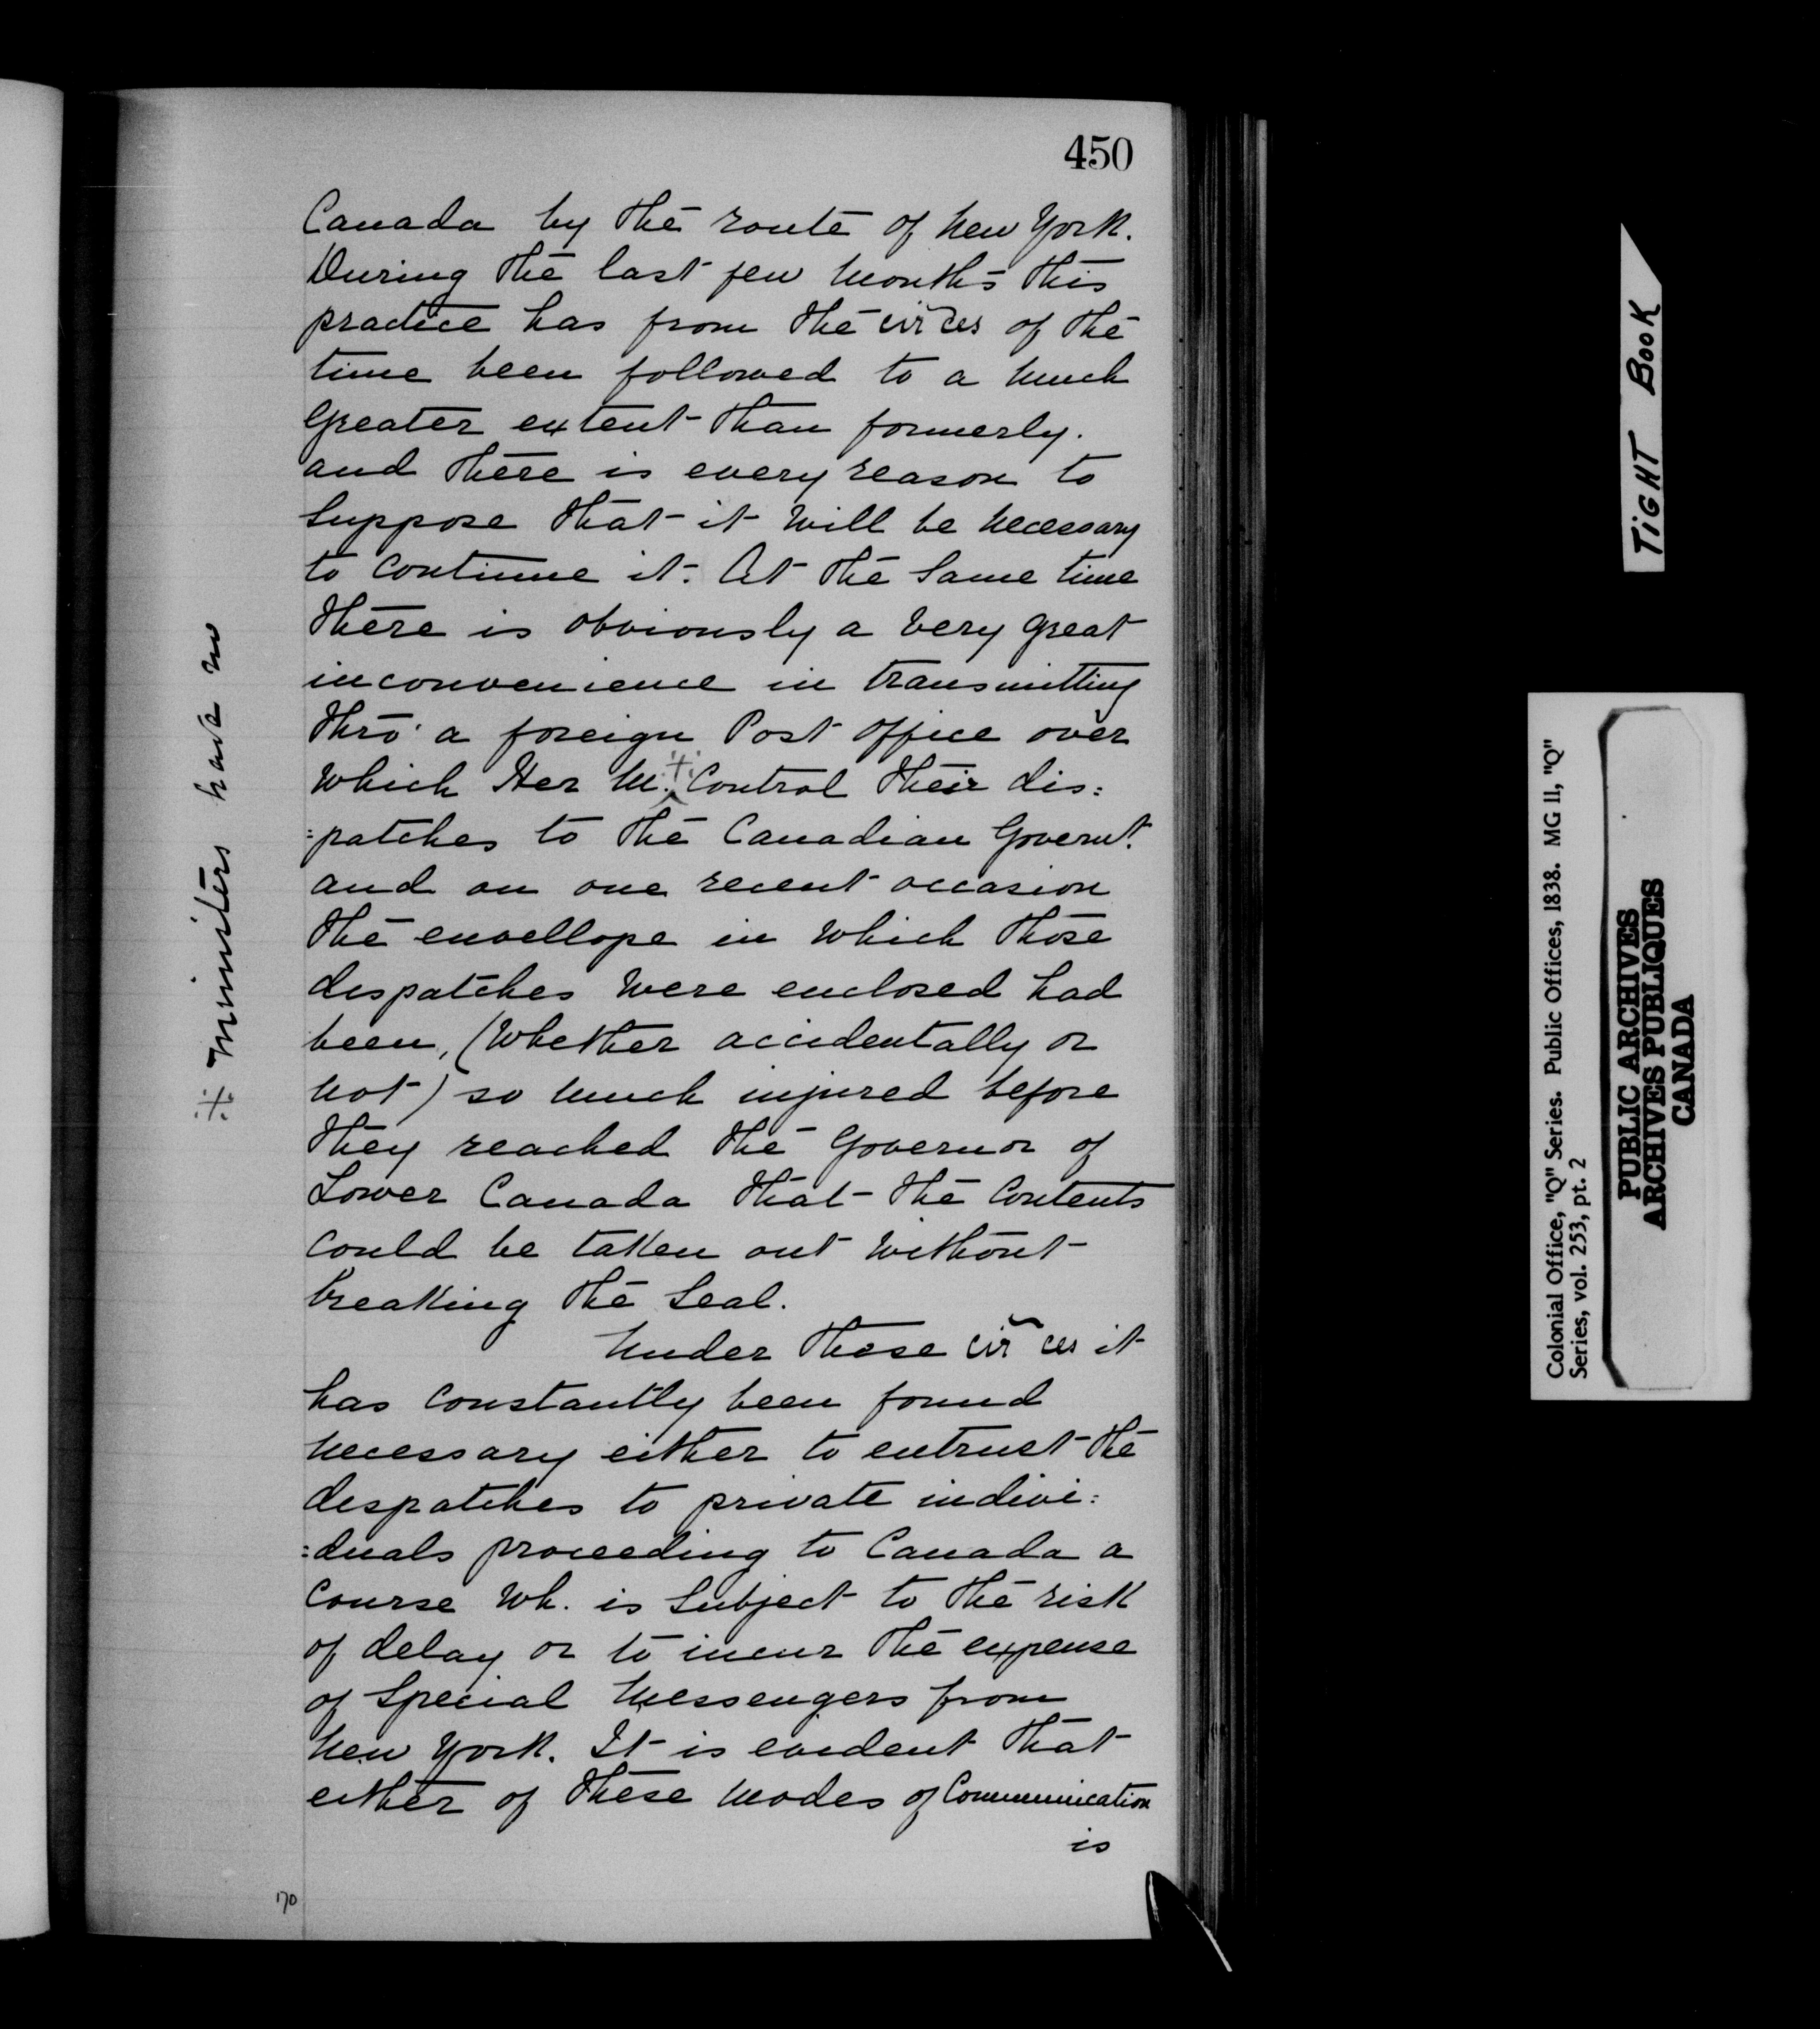 450
Canada by the route of New York.
During the last few months this
practice has from the cir~ces of the
time been followed to a much
greater extent than formerly.
and there is every reason to
suppose that it will be necessary
to continue it. At the same time
there is obviously a very great
inconvenience in transmitting
thro' a foreign Post office over
which Her M. ※ control their dis=
=patches to the Canadian Governt.
and on one recent occasion
the envellope in which those
despatches were enclosed had
been, (whether accidentally or
not) so much injured before
they reached the Governor of
Lower Canada that the contents
could be taken out without
breaking the seal.
Under these cir~ces it
has constantly been found
necessary either to entrust the
despatches to private indivi=
=duals proceeding to Canada a
course wh. is subject to the risk
of delay or to incur the expense
of special messengers from
New York. It is evident that
either of these modes of Communication
is
※ ministers have no
170
TIGHT BOOK
Colonial Office, "Q" Series. Public Offices, 1838. MG 11, "Q"
Series, vol. 253, pt. 2
PUBLIC ARCHIVES
ARCHIVES PUBLIQUES
CANADA